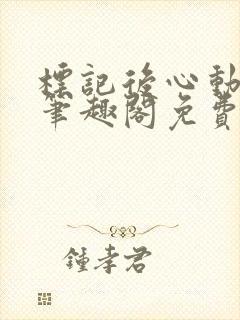 標記後心動
筆趣閣免費
鍾孝君